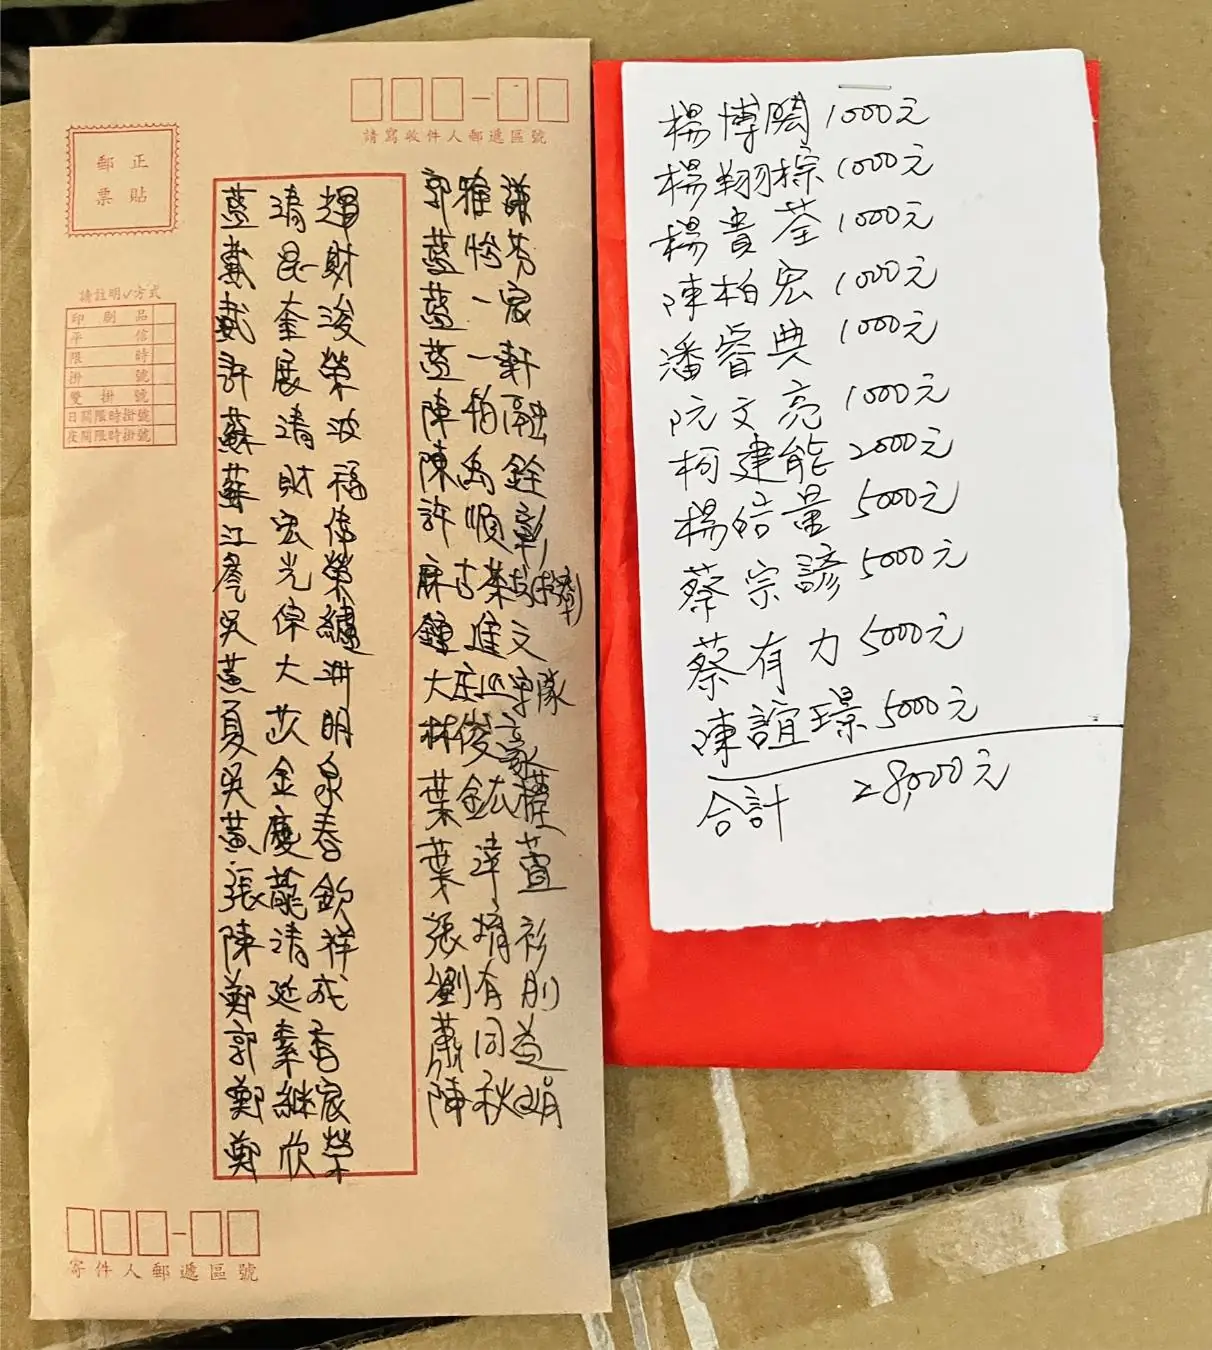 請寫收件人郵遞區號
正貼
郵票
請註明✓方式
印刷品
平信
限時
掛號
雙掛號
日間限時掛號
夜間限時掛號
藍清
戴昆財
戴奎浚
許展榮
蘇清波
蘇財福
江宏偉
詹光榮
吳
黃大
夏苡明
吳金泉
黃慶春
張龍欽
陳清祥
鄭延成
郭素香
鄭繼宸
鄭欣榮
郭雅謙
藍怡芬
藍一宸
藍一軒
陳柏融
陳禹銓
許順彰
麻古茶坊
鐘進文
大庄巡守隊
林俊豪
葉鈜
葉萱
張衫
劉有
蕭同益
陳秋娟
寄件人郵遞區號
楊博閎 1000元
楊翔棕 1000元
楊貴荃 1000元
陳柏宏 1000元
潘睿典 1000元
阮文亮 1000元
柯建能 2000元
楊皓量 5000元
蔡宗諺 5000元
蔡有力 5000元
陳誼璟 5000元
合計 28,000元